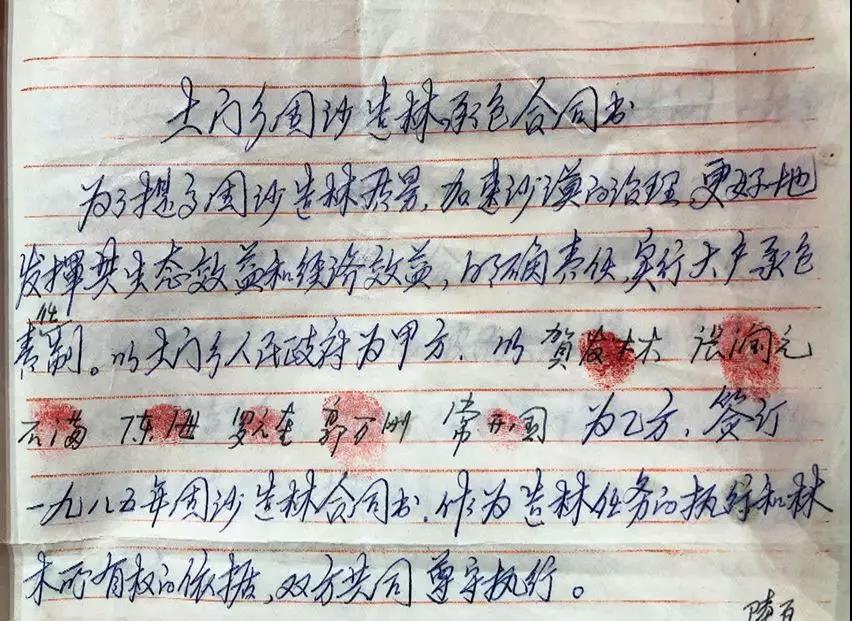 土门乡固沙造林承包合同书
为了提高固沙造林质量，加速沙漠的治理，更好地
发挥其生态效益和经济效益，明确责任，实行大户承包
责任制。以土门乡人民政府为甲方，以 贺发林 张润元
石满 陈海 罗元奎 郭万刚 常开国 为乙方，签订
一九八五年固沙造林合同书，作为造林任务的执行和林
木所有权的依据，双方共同尊守执行。